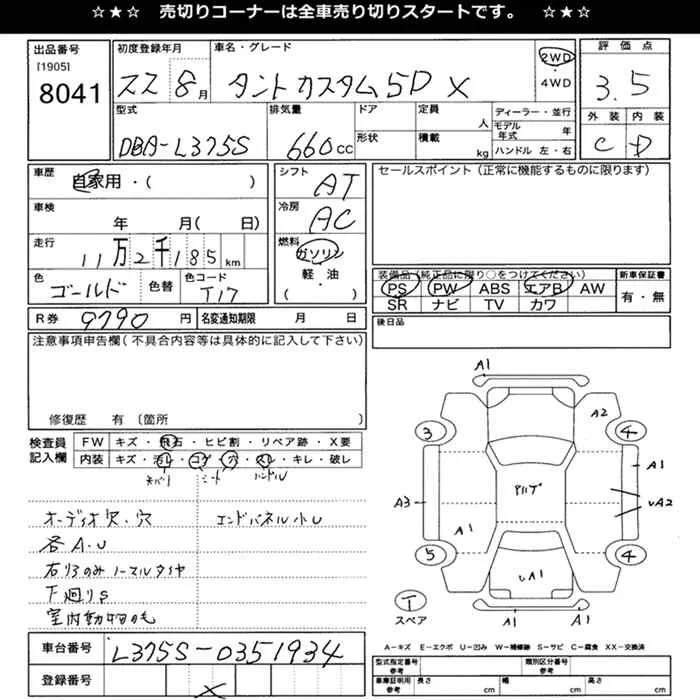 ☆★☆ 売切りコーナーは全車売り切りスタートです。 ☆★☆
出品番号 [1905] 8041
初度登録年月 22 8月
車名・グレード タントカスタム5D X
2WD ・ 4WD
評価点 3.5
外装 内装
C D
型式 DBA-L375S
排気量 660cc
ドア 形状
定員 人 積載 kg
ディーラー・並行
モデル年式 年
ハンドル 左・右
車歴 自家用・( )
車検 年 月( 日)
走行 11万2千185km
色 ゴールド 色替
色コード T17
シフト AT
冷房 AC
燃料 ガソリン 軽・油 ( ・ )
R券 9790円
名変通知期限 月 日
セールスポイント(正常に機能するものに限ります)
装備品(純正品に限り○をつけてください)
PS PW ABS エアB AW
SR ナビ TV カワ
新車保証書 有・無
後日品
注意事項申告欄(不具合内容等は具体的に記入して下さい)
修復歴 有 〔箇所 〕
検査員記入欄
FW キズ・飛石・ヒビ割・リペア跡・X要
内装 キズ・汚レ・コゲ・穴・スレ・キレ・破レ
天バリ シート ハンドル
オーディオ欠.穴 エンドパネル小U
各A.U
右リヤのみノーマルタイヤ
下廻りS
室内動物のも
A1
A2
3 4
A1
A3
UA2
A1
UA1
5 4
T スペア
A1 A1
A―キズ E―エクボ U―凹み W―補修跡 S―サビ C―腐食 XX―交換済
車台番号 L375S-0351934
登録番号 X
型式指定番号 参考
類別区分番号 参考
車庫証明用 参考 長さ cm 幅 cm 高さ cm